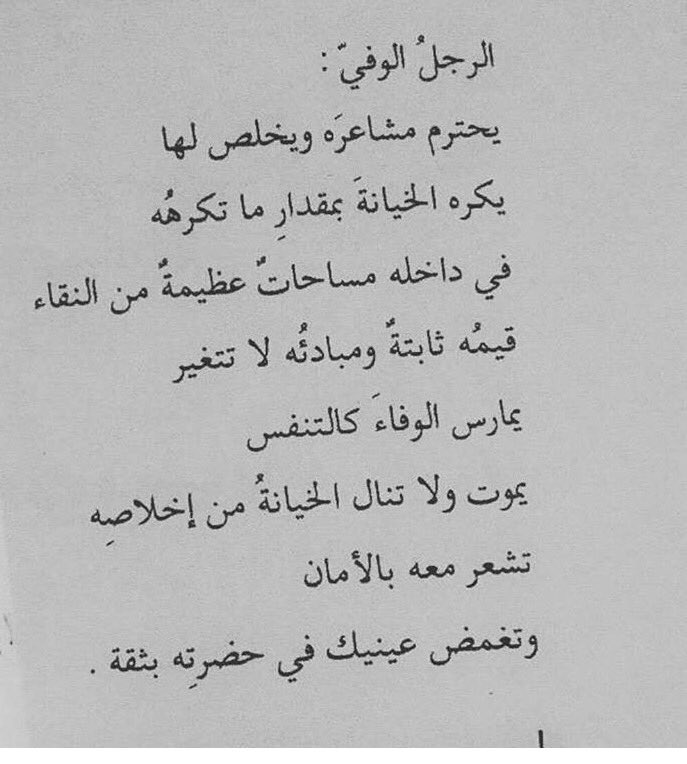 الرجلُ الوفيّ :
يحترم مشاعرَه ويخلص لها
يكره الخيانةَ بمقدارِ ما تكرهُه
في داخله مساحاتٌ عظيمةٌ من النقاء
قيمُه ثابتةٌ ومبادئُه لا تتغير
يمارس الوفاءَ كالتنفس
يموت ولا تنال الخيانةُ من إخلاصِه
تشعر معه بالأمان
وتغمض عينيك في حضرتِه بثقة .